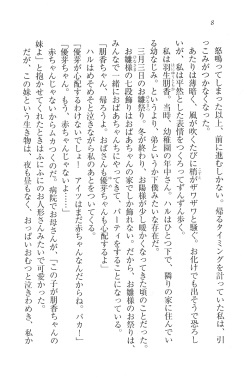 8
怒鳴ってしまった以上、前に進むしかない。帰るタイミングを計っていた私は、引
っこみがつかなくなった。
あたりは薄暗く、風が吹くたびに梢がザワザワと騒ぐ。お化けでも出そうで恐ろし
いが、私は平然とした表情をつくろってずんずん歩く。
私は羽生朋香。当時、幼稚園の年中さん。ハルはひとつ下で、隣りの家に住んでい
る幼なじみ。というより、弟というか下僕みたいな存在だ。
三月三日のお雛祭り。冬が終わり、お陽様が少し暖かくなってきた頃のことだった。
お雛様の七段飾りはおばあちゃんの家でしか飾れない。だから、お雛祭りのお祭りは、
みんなで一緒におばあちゃんちにやってきて、パーティをすることになっている。
「朋香ちゃん、帰ろうよ。おばさんも優芽ちゃんも心配するよ」
ハルはめそめそと泣きながら私のあとをついてくる。
「優芽が心配するわけないでしょ！　アイツはまだ赤ちゃんなんだからね。バカー！」
「優芽ちゃん、もう、赤ちゃんじゃないよ……」
赤ちゃんじゃないからムカつくのだ。病院でお母さんが、「この子が朋香ちゃんの
妹よ」と抱かせてくれたときはふにふにのお人形さんみたいで可愛かった。
だが、この妹という生き物は、夜も昼もなく、おっぱいおむつと泣きわめき、私か